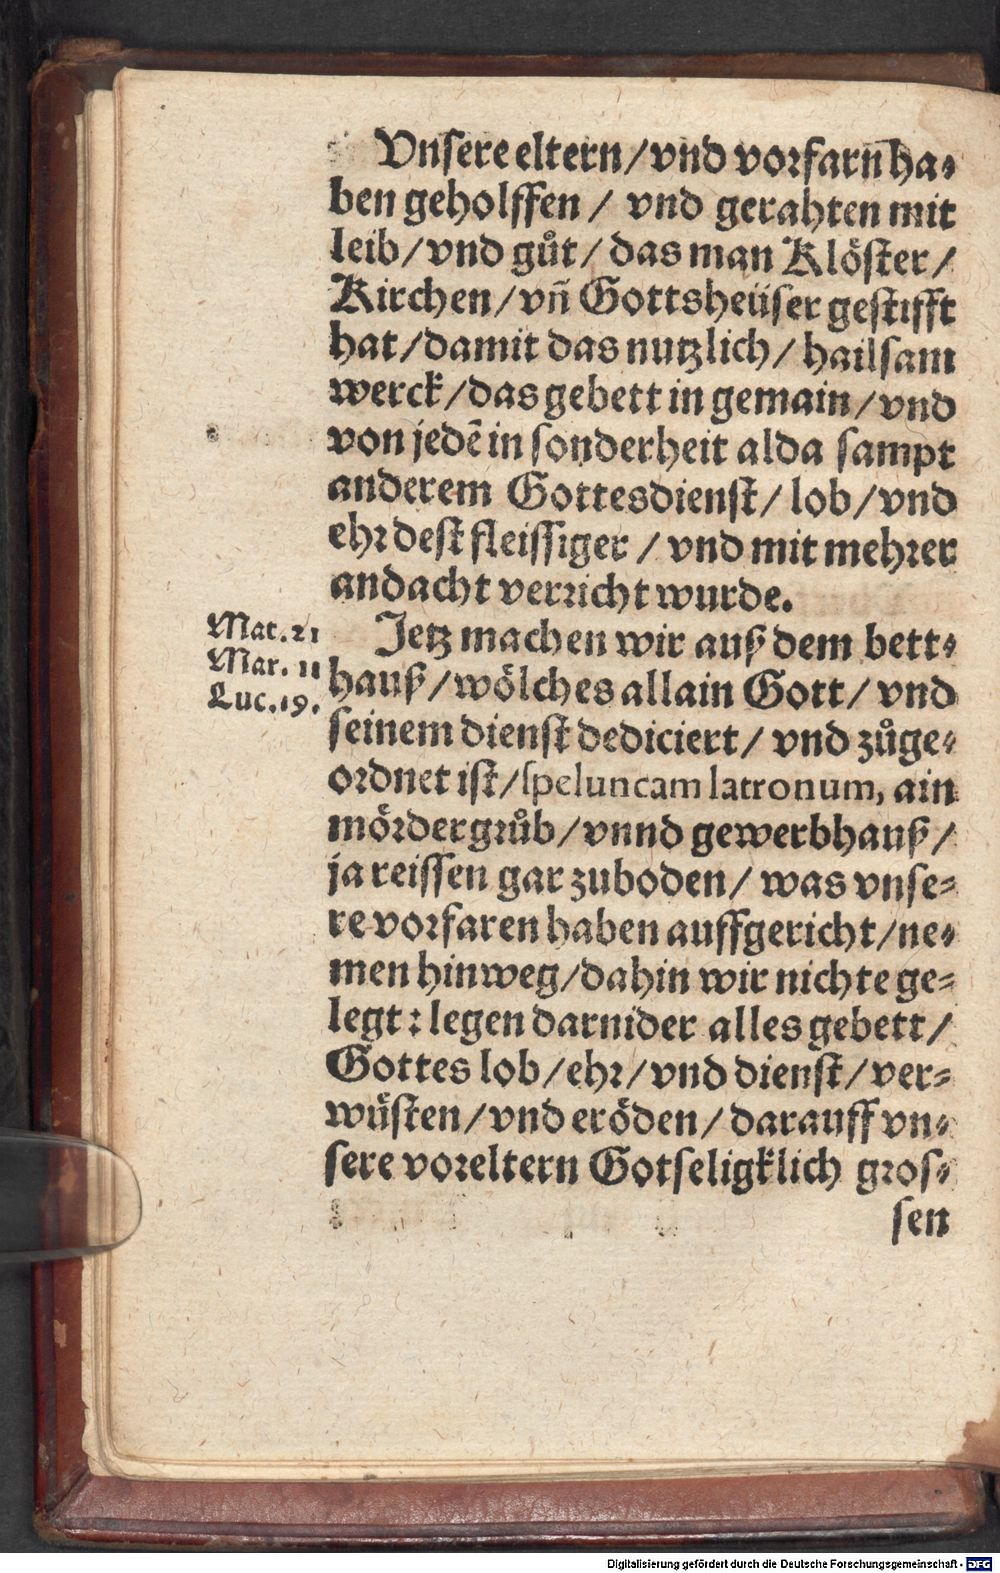 Vnsere eltern/vnd vorfarn ha⸗
ben geholffen / vnd gerahten mit
leib/vnd gůt/ das man Klöster/
Kirchen/vn̄ Gottsheüser gestifft
hat/damit das nutzlich/ hailsam
werck/das gebett in gemain/vnd
von jedē in sonderheit alda sampt
anderem Gottesdienst/ lob/vnd
ehr dest fleissiger / vnd mit mehrer
andacht verricht wurde.
Mat. 21
Mar. 11
Luc. 19.
Jetz machen wir auß dem bett⸗
hauß/wölches allain Gott/ vnd
seinem dienst dediciert/ vnd zůge⸗
ordnet ist/speluncam latronum, ain
mördergrůb/vnnd gewerbhauß/
ja reissen gar zuboden/ was vnse⸗
re vorfaren haben auffgericht/ne⸗
men hinweg/dahin wir nichte ge⸗
legt: legen darnider alles gebett/
Gottes lob/ehr/vnd dienst/ver⸗
wüsten/vnd eröden/darauff vn⸗
sere voreltern Gotseligklich gros⸗
sen
Digitalisierung gefördert durch die Deutsche Forschungsgemeinschaft - DFG